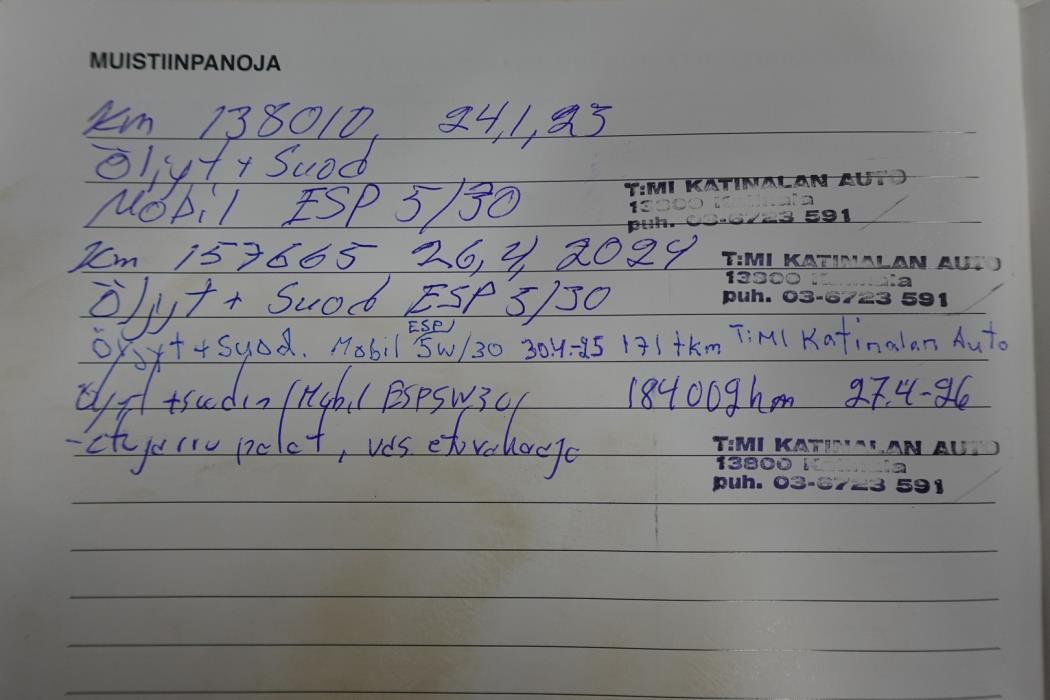 MUISTIINPANOJA
Km 138010, 24,1,23
Öljyt + Suod
Mobil ESP 5/30
T:MI KATINALAN AUTO
13800
puh. 03-6723 591
Km 157665 26,4, 2024
Öljyt + Suod ESP 5/30
T:MI KATINALAN AUTO
13800
puh. 03-6723 591
ESP
Öljyt + Suod. Mobil 5W/30 30.4.-25 171 tkm T:MI Katinalan Auto
Öljyt + suodin (Mobil ESP5W30, 184009 km 27.4-26
-etujarru palat, vas. etuvahaaja
T:MI KATINALAN AUTO
13800
puh. 03-6723 591